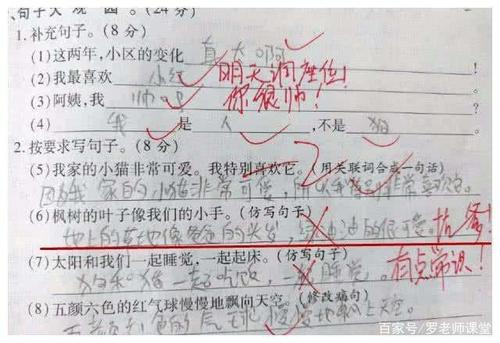 句子大观园。(24分)
1.补充句子。(8分)
(1)这两年,小区的变化 真大啊 !
(2)我最喜欢 小红 ! 明天调座位!
(3)阿姨,我 帅吗 ! 你很帅!
(4) 我 是 人 ,不是 狗
2.按要求写句子。(8分)
(5)我家的小猫非常可爱。我特别喜欢它。(用关联词合成一句话)
因为我家的小猫非常可爱,所以我特别非常喜欢它。
(6)枫树的叶子像我们的小手。(仿写句子)
地上的草地像爸爸的头发,绿油油的很可爱。找爹!
(7)太阳和我们一起睡觉,一起起床。(仿写句子)
狗和猫一起吃饭, 睡觉。 有点常识!
(8)五颜六色的红气球慢慢地飘向天空。(修改病句)
五颜六色的气球慢慢地飘上天空。
百家号/罗老师课堂